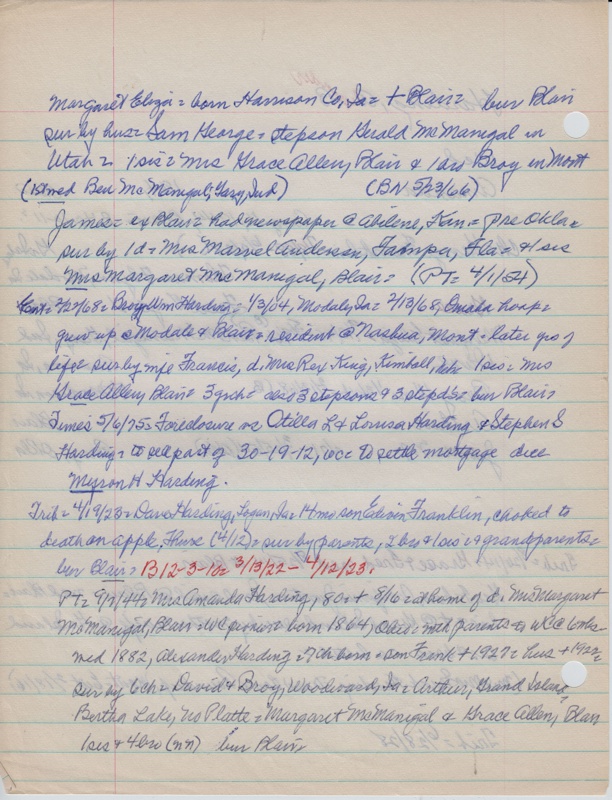 Margaret Eliza = born Harrison Co, Ia = + Blair = bur Blair
sur by hus = Sam George = stepson Gerald McManigal in
Utah = 1 sis = Mrs Grace Allen, Blair & 1 bro Broy in Mont
(1st med Ben McManigal, Gary, Ind) (BN 5/23/66)
James = ex Blair = had newspaper @ Abilene, Kan = Pre Okla =
sur by 1 d = Mrs Marvel Anderson, Tampa, Fla = & 1 sis
Mrs Margaret McManigal, Blair = (PT = 4/1/54)
2/22/68 = Broy Wm Harding = 1/3/04, Modale, Ia = 2/13/68, Omaha hosp =
grew up @ Modale & Blair = resident @ Nashua, Mont = later yrs of
life = sur by wife Francis, d. Mrs Rex King, Kimball, 1 sis = Mrs
Grace Allen, Blair = 3 grch = also 3 stepsons & 3 stepd's = bur Blair =
Times 5/6/75 = Foreclosure vs Otilla L & Louisa Harding & Stephen S
Harding = to sell part of 30-19-12, WC = To settle mortgage due
Myron H Harding.
Trib = 4/19/23 = Dave Harding, Logan, Ia = 14 mo son Edwin Franklin, choked to
death on apple, Thurs (4/12) = sur by parents, 2 bro & 1 sis = grandparents =
bur Blair = B12-3-10 = 3/13/22 - 4/12/23.
PT = 9/7/44 = Mrs Amanda Harding, 80 = + 8/16 = at home of d. Mrs Margaret
McManigal, Blair = WC pioneer = born 1864, Ohio = with parents to WC @ 6 mos =
med 1882, Alexander Harding = 7 ch born = son Frank + 1927 = hus + 1922 =
sur by 6 ch = David & Broy, Woodward, Ia = Arthur, Grand Island =
Bertha Lake, No Platte = Margaret McManigal & Grace Allen, Blair
1 sis & 4 bro (nn) bur Blair =